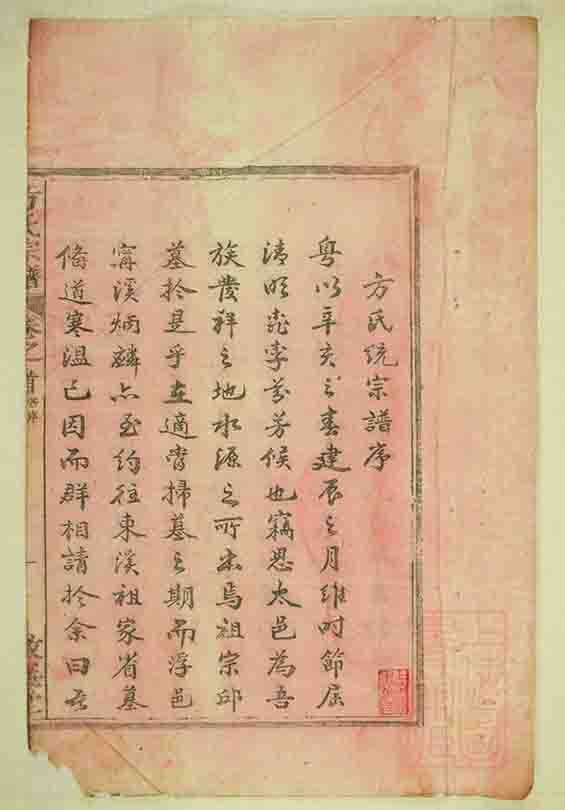 方氏統宗譜序
粵以辛亥之春建辰之月維時節屆
清明桃李芬芳候也竊思太邑為吾
族發祥之地水源之所本焉祖宗邱
墓於是乎在適當掃墓之期而浮邑
甯溪炳麟亦至約往東溪祖家省墓
備道寒溫已因而群相請於余曰吾
方氏宗譜 卷之首